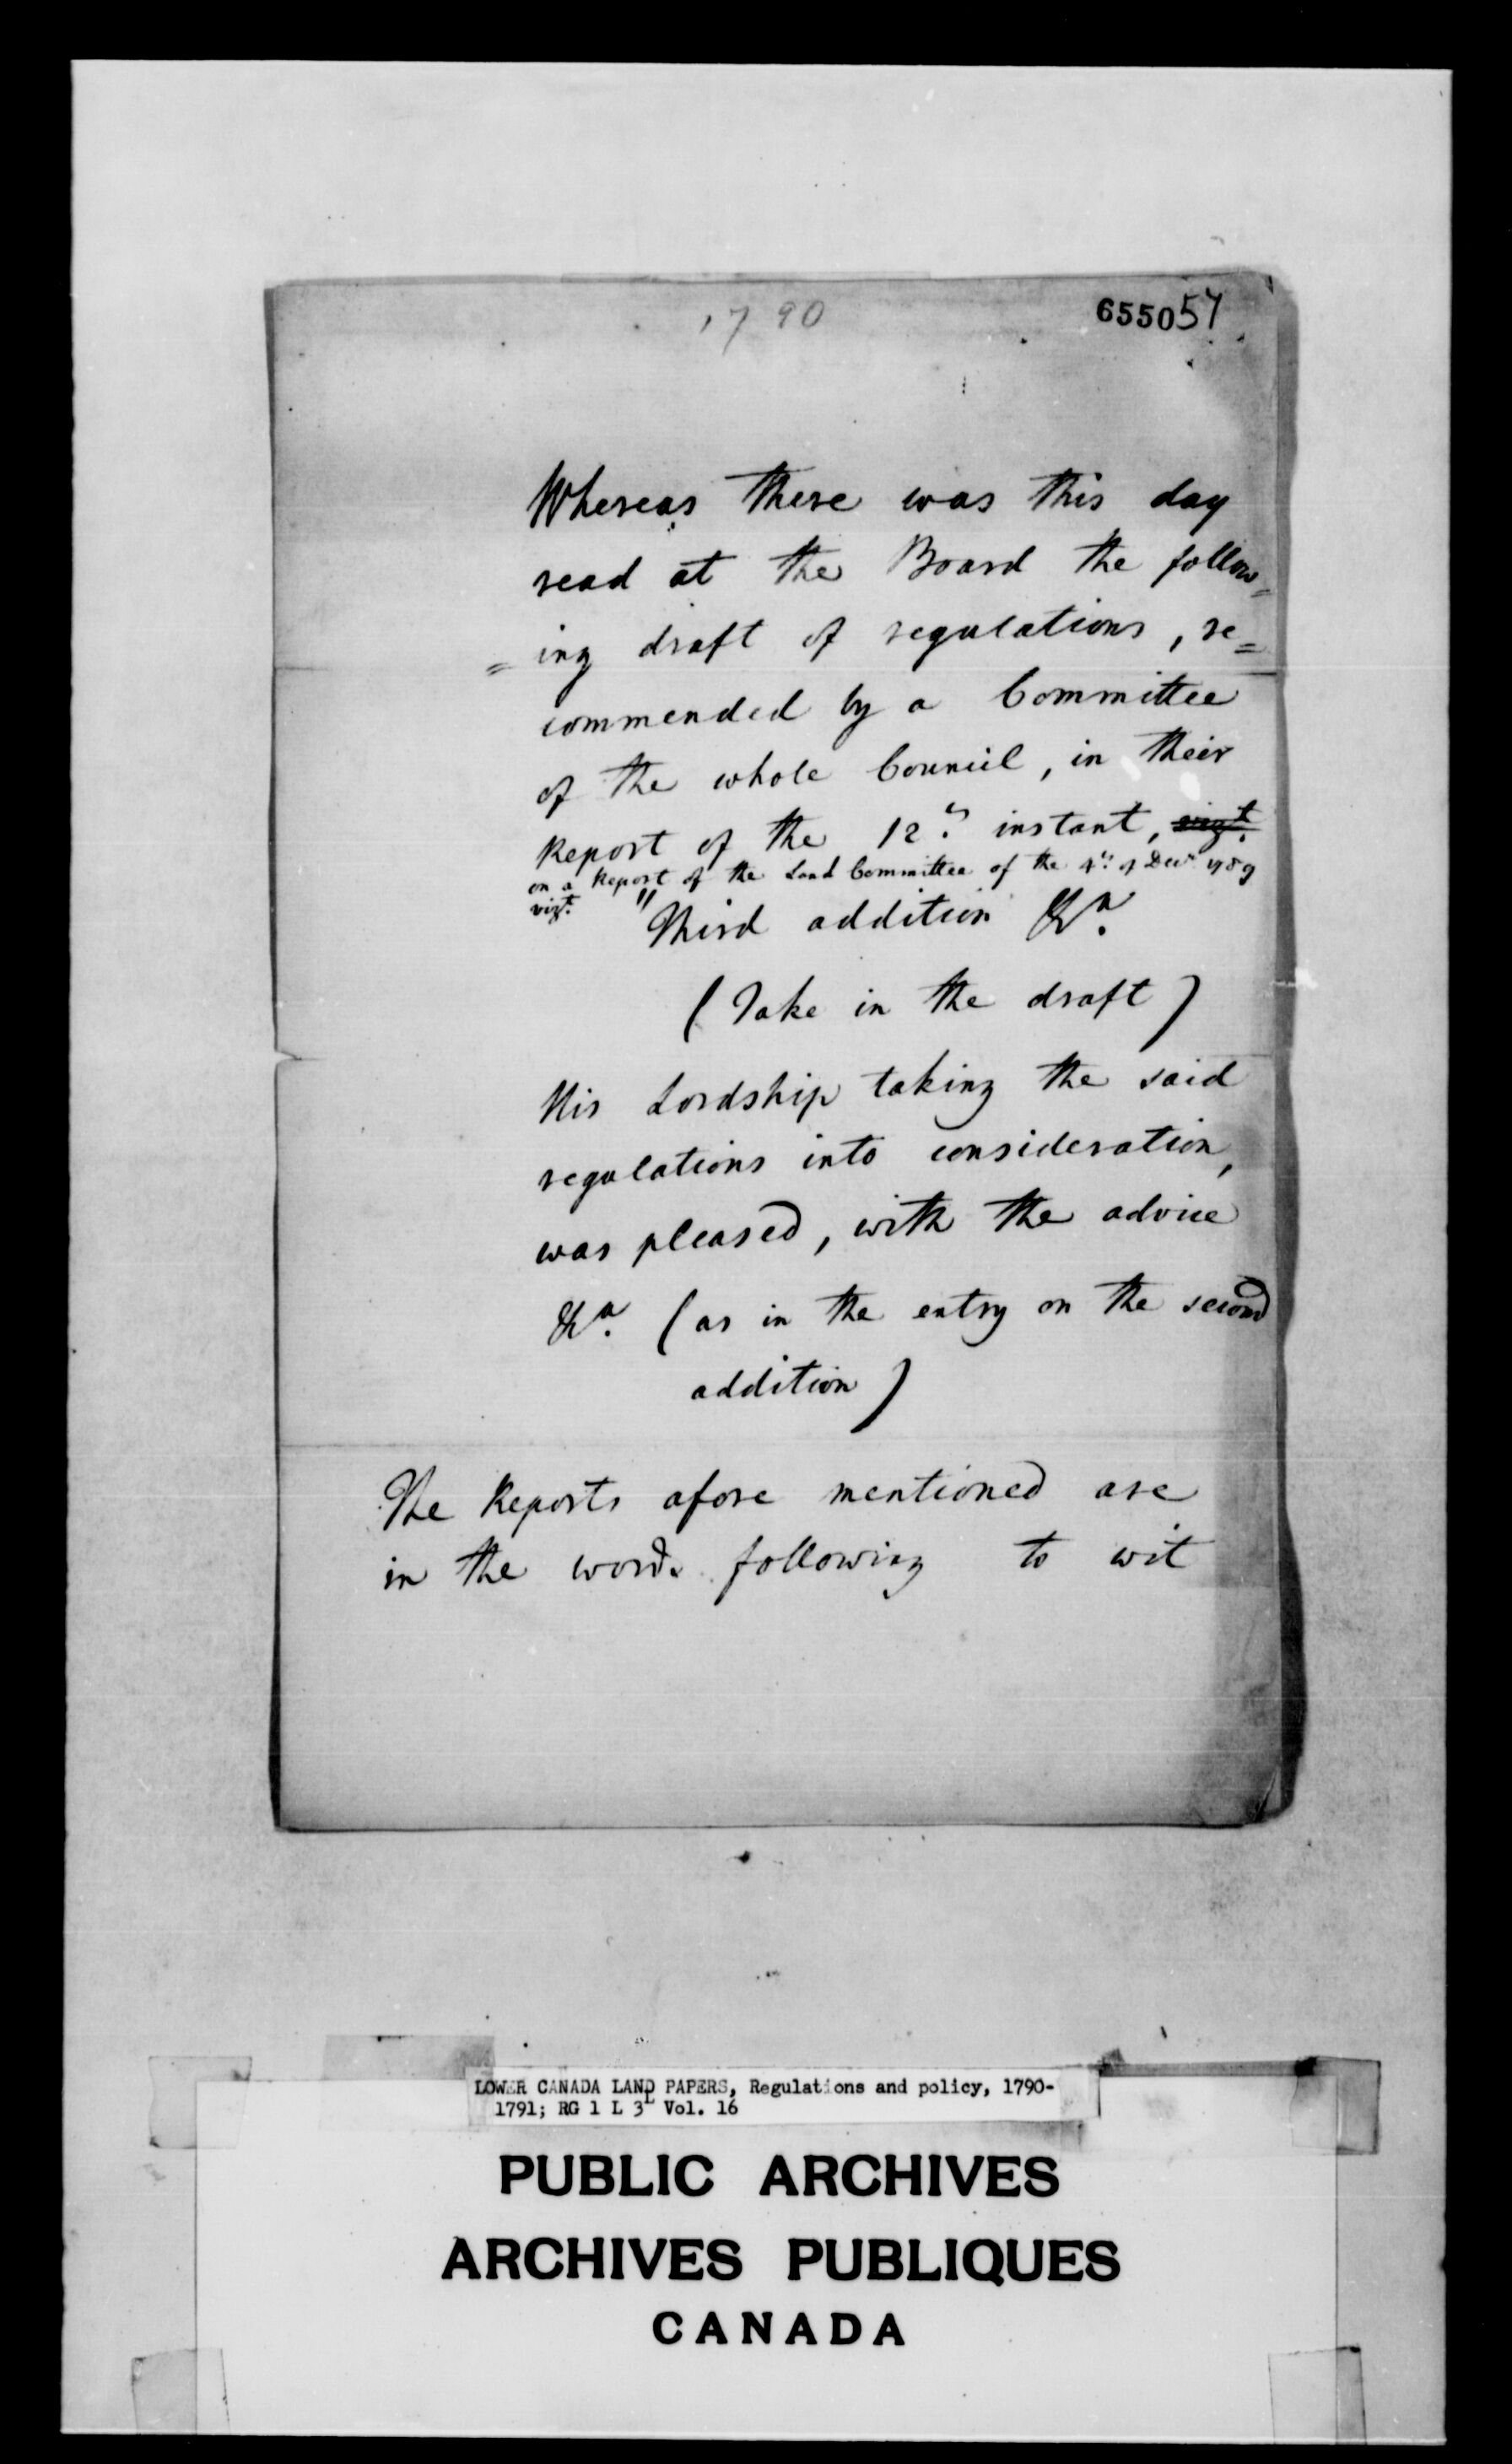 1790
65505
Whereas there was this day
read at the Board the follow=
=ing draft of regulations, re=
commended by a Committee
of the whole Council, in their
Report of the 12th instant, vizt.
on a Report of the Land Committee of the 4th of Decr 1789
vizt.
"Third addition &a.
(Take in the draft)
His Lordship taking the said
regulations into consideration,
was pleased, with the advice
&a. (as in the entry on the second
addition)
The Reports afore mentioned are
in the words following to wit
LOWER CANADA LAND PAPERS, Regulations and policy, 1790-
1791; RG 1 L 3L Vol. 16
PUBLIC ARCHIVES
ARCHIVES PUBLIQUES
CANADA